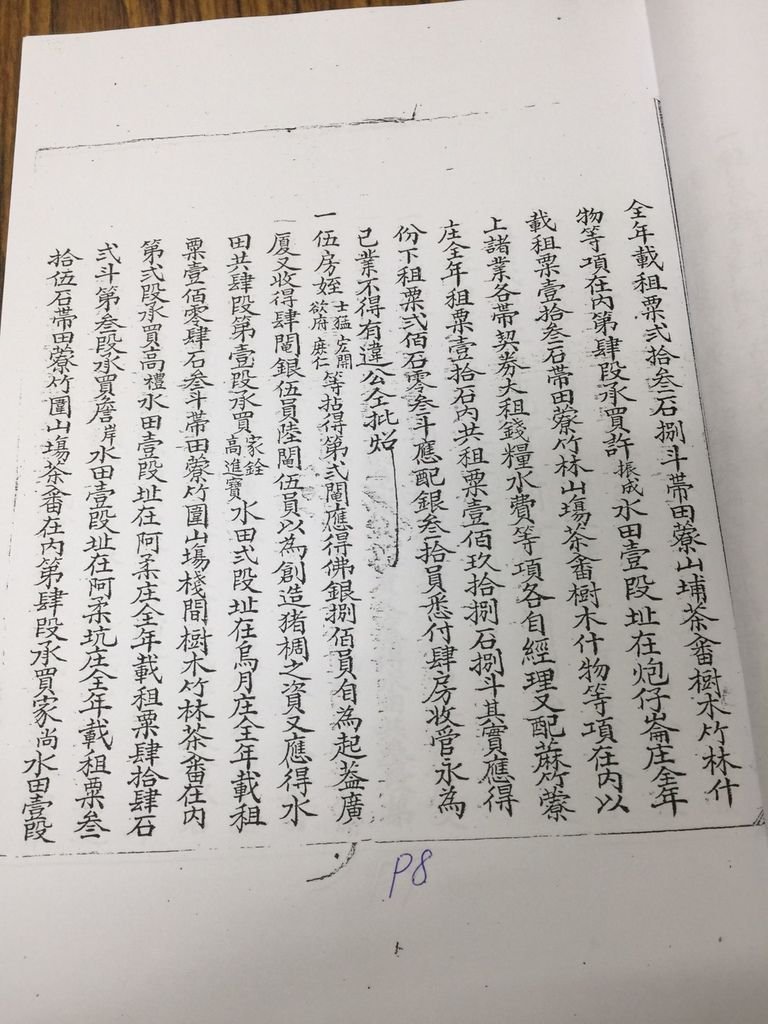 全年載租粟弍拾叁石捌斗帶田藔山埔茶畨樹木竹林什
物等項在內第肆段承買許振成水田壹段址在炮仔崙庄全年
載租粟壹拾叁石帶田藔竹林山塲茶畨樹木什物等項在內以
上諸業各帶契券大租錢糧水費等項各自經理又配蔴竹藔
庄全年租粟壹拾石內共租粟壹佰玖拾捌石捌斗其實應得
份下租粟弍佰石零叁斗應配銀叁拾員悉付肆房收管永為
己業不得有違公仝批炤
一伍房姪士猛宏開欲府庶仁等拈得第弍鬮應得佛銀捌佰員自為起葢廣
厦又收得肆鬮銀伍員陸鬮伍員以為創造猪椆之資又應得水
田共肆段第壹段承買家銓高進寶水田弍段址在烏月庄全年載租
粟壹佰零肆石叁斗帶田藔竹圍山塲棧間樹木竹林茶畨在內
第弍段承買高禮水田壹段址在阿柔庄全年載租粟肆拾肆石
弍斗第叁段承買詹岸水田壹段址在阿柔坑庄全年載租粟叁
拾伍石帶田藔竹圍山塲茶畨在內第肆段承買家尚水田壹段
P8